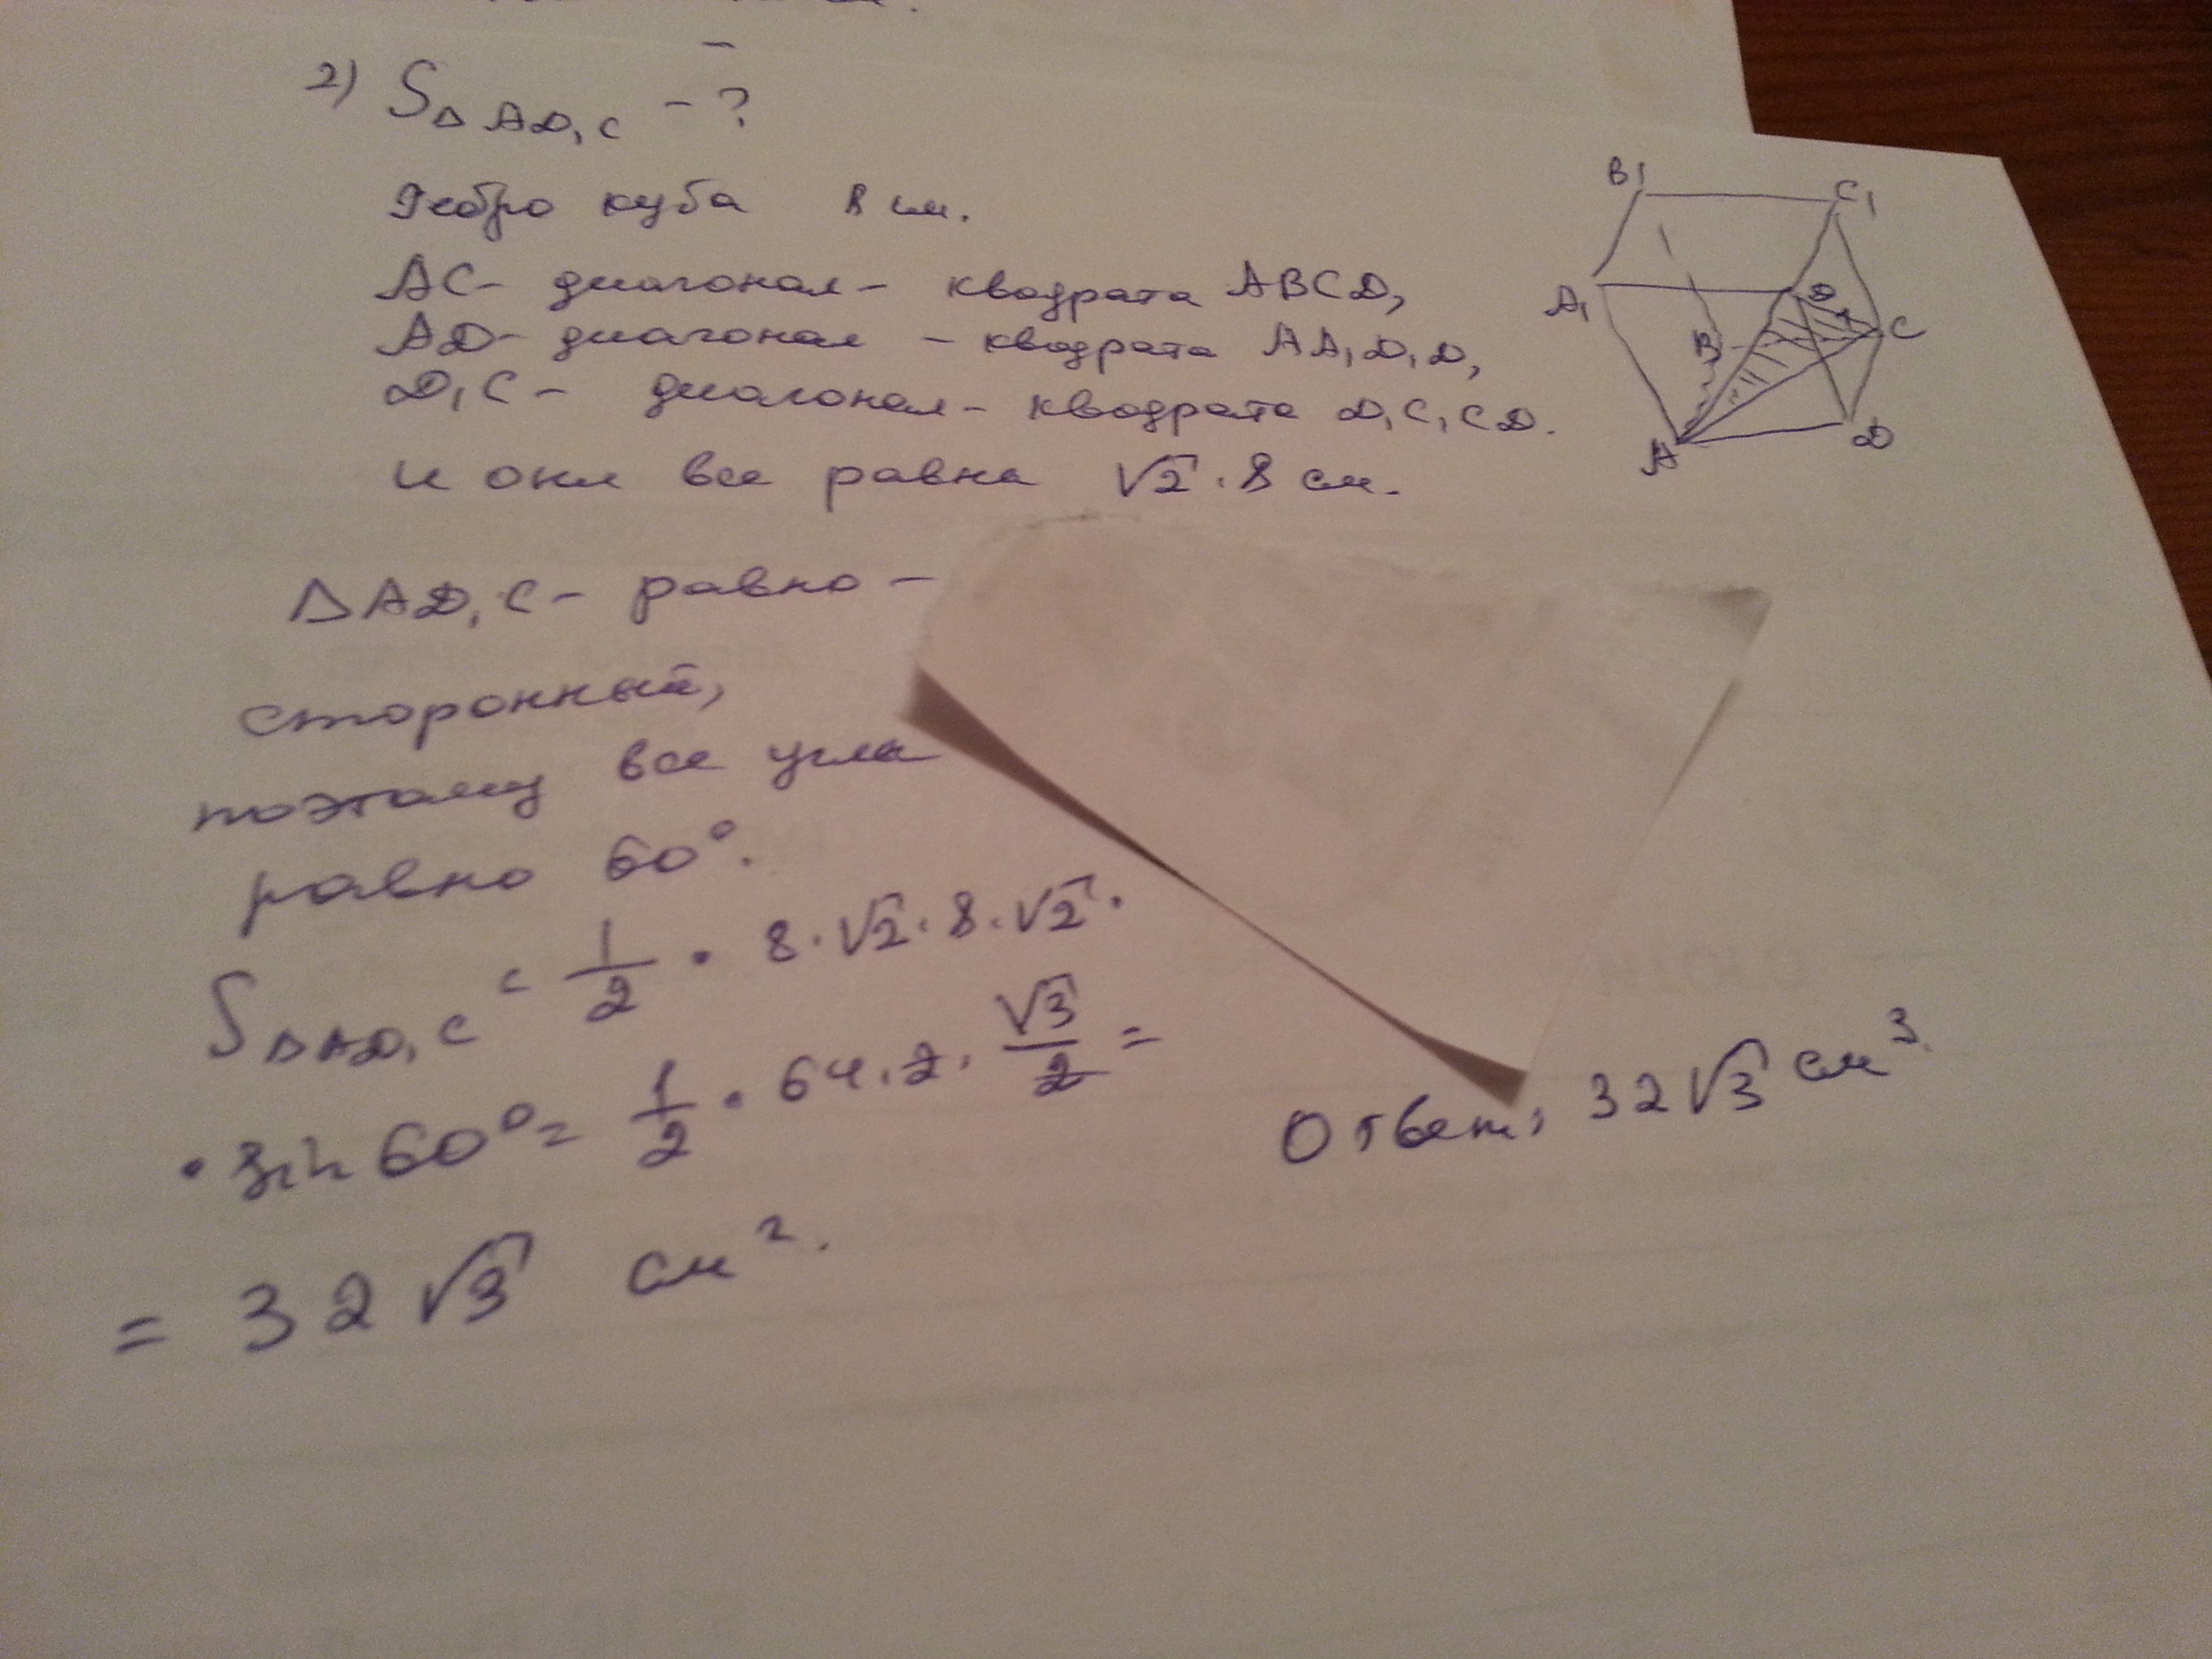 2) S△AD₁C - ?
Ребро куба 8 см.
AC - диагонал - квадрата ABCD,
AD - диагонал - квадрата AA₁D₁D,
D₁C - диагонал - квадрата D₁C₁CD.
и они все равна √2 · 8 см.
B₁ C₁
A₁ D₁
B C
A D
△AD₁C - равно-
сторонный,
поэтому все углы
равно 60°.
S△AD₁C = 1/2 · 8 · √2 · 8 · √2 ·
· sin 60° = 1/2 · 64 · 2 · √3/2 =
= 32√3 см².
Ответ: 32√3 см³.